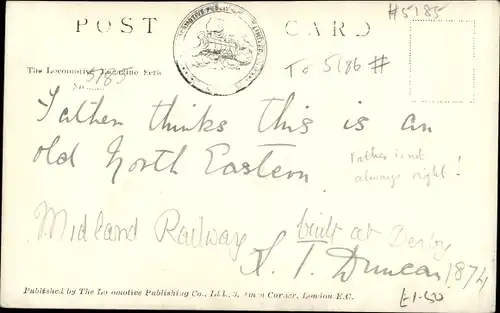 #5185
POST CARD
LOCOMOTIVE PUBLISHING
To 5186 #
The Locomotive Magazine Series
No. 5185
Father thinks this is an
old North Eastern
Father is not
always right!
Midland Railway built at Derby
S. T. Duncan 1874
Published by The Locomotive Publishing Co., Ltd., 3, Amen Corner, London E.C.
£1.50